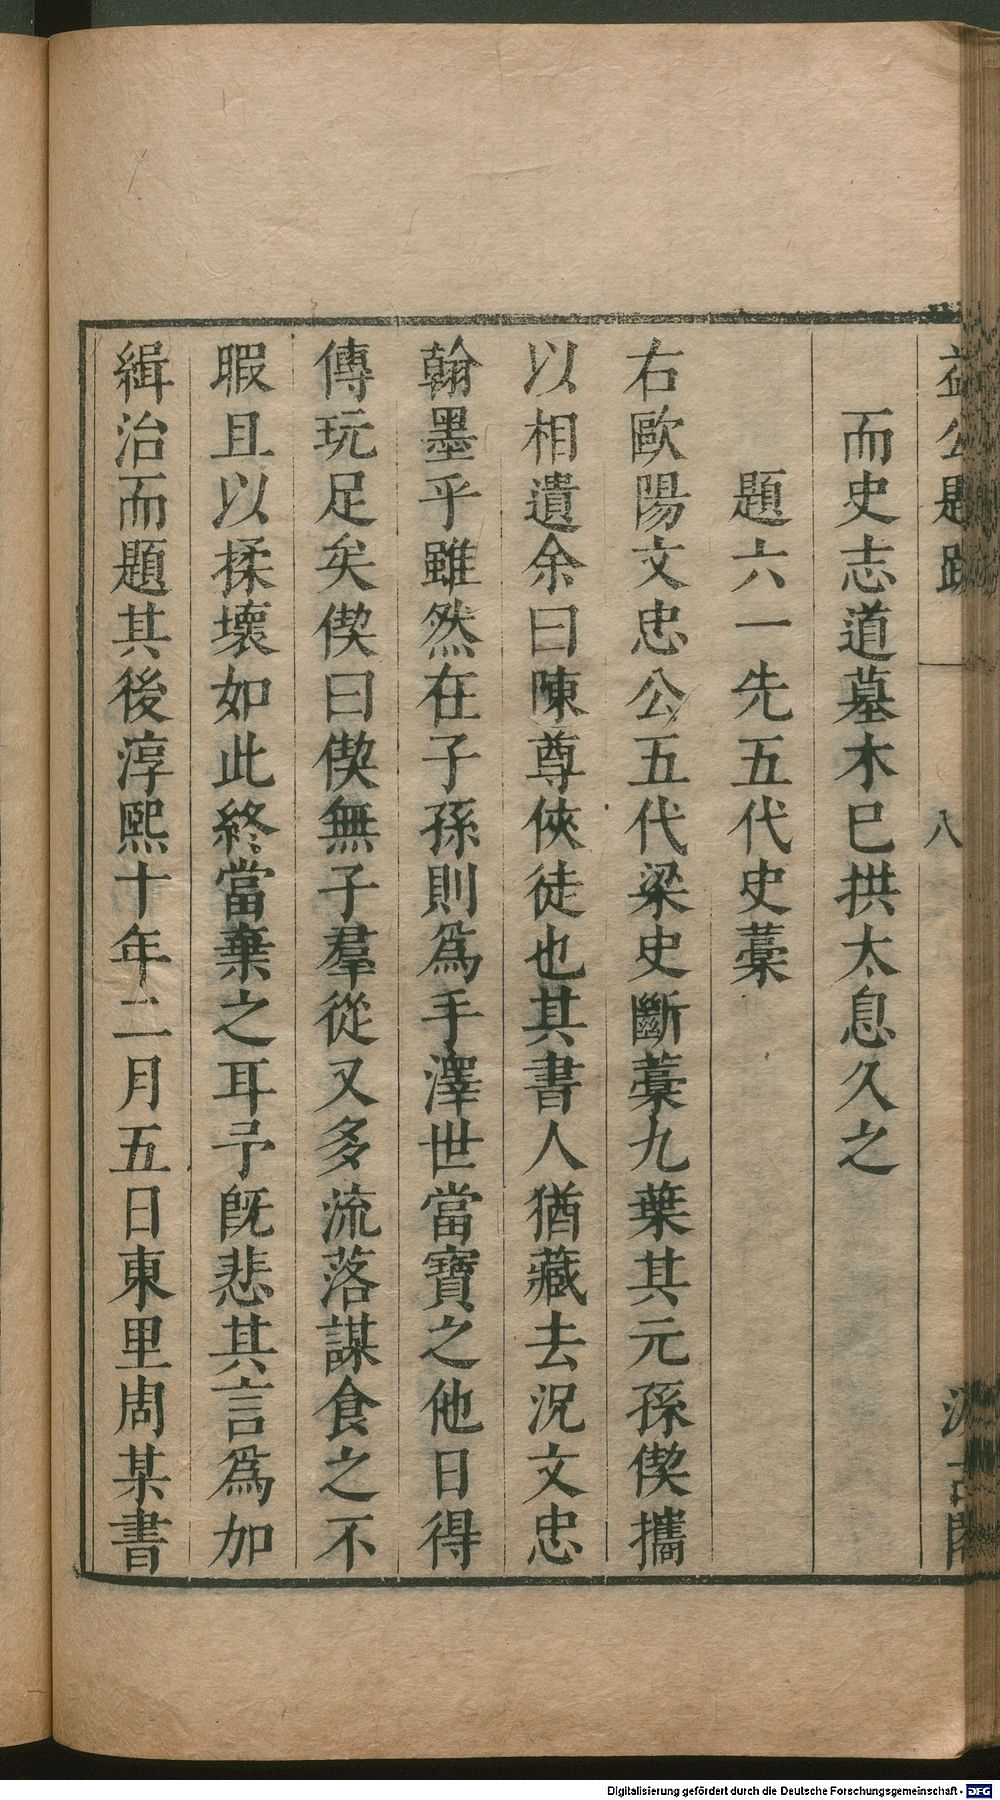 益公題跋 八 汲古閣
而史志道墓木巳拱太息久之
題六一先五代史藁
右歐陽文忠公五代梁史斷藁九葉其元孫偰攜
以相遺余曰陳尊俠徒也其書人猶藏去況文忠
翰墨乎雖然在子孫則爲手澤世當寶之他日得
傳玩足矣偰曰偰無子羣從又多流落謀食之不
暇且以揉壞如此終當棄之耳予旣悲其言爲加
緝治而題其後淳熙十年二月五日東里周某書
Digitalisierung gefördert durch die Deutsche Forschungsgemeinschaft - DFG